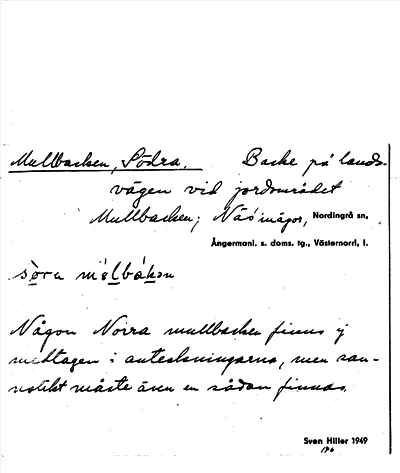 Mullbacken, Södra. Backe på lands-
vägen vid jordområdet
Mullbacken; Näs inägor, Nordingrå sn,
Ångermanl. s. doms. tg., Västernorrl. l.
Någon Norra mullbacken finns ej
medtagen i anteckningarna, men san-
nolikt måste även en sådan finnas.
Sven Hiller 1949